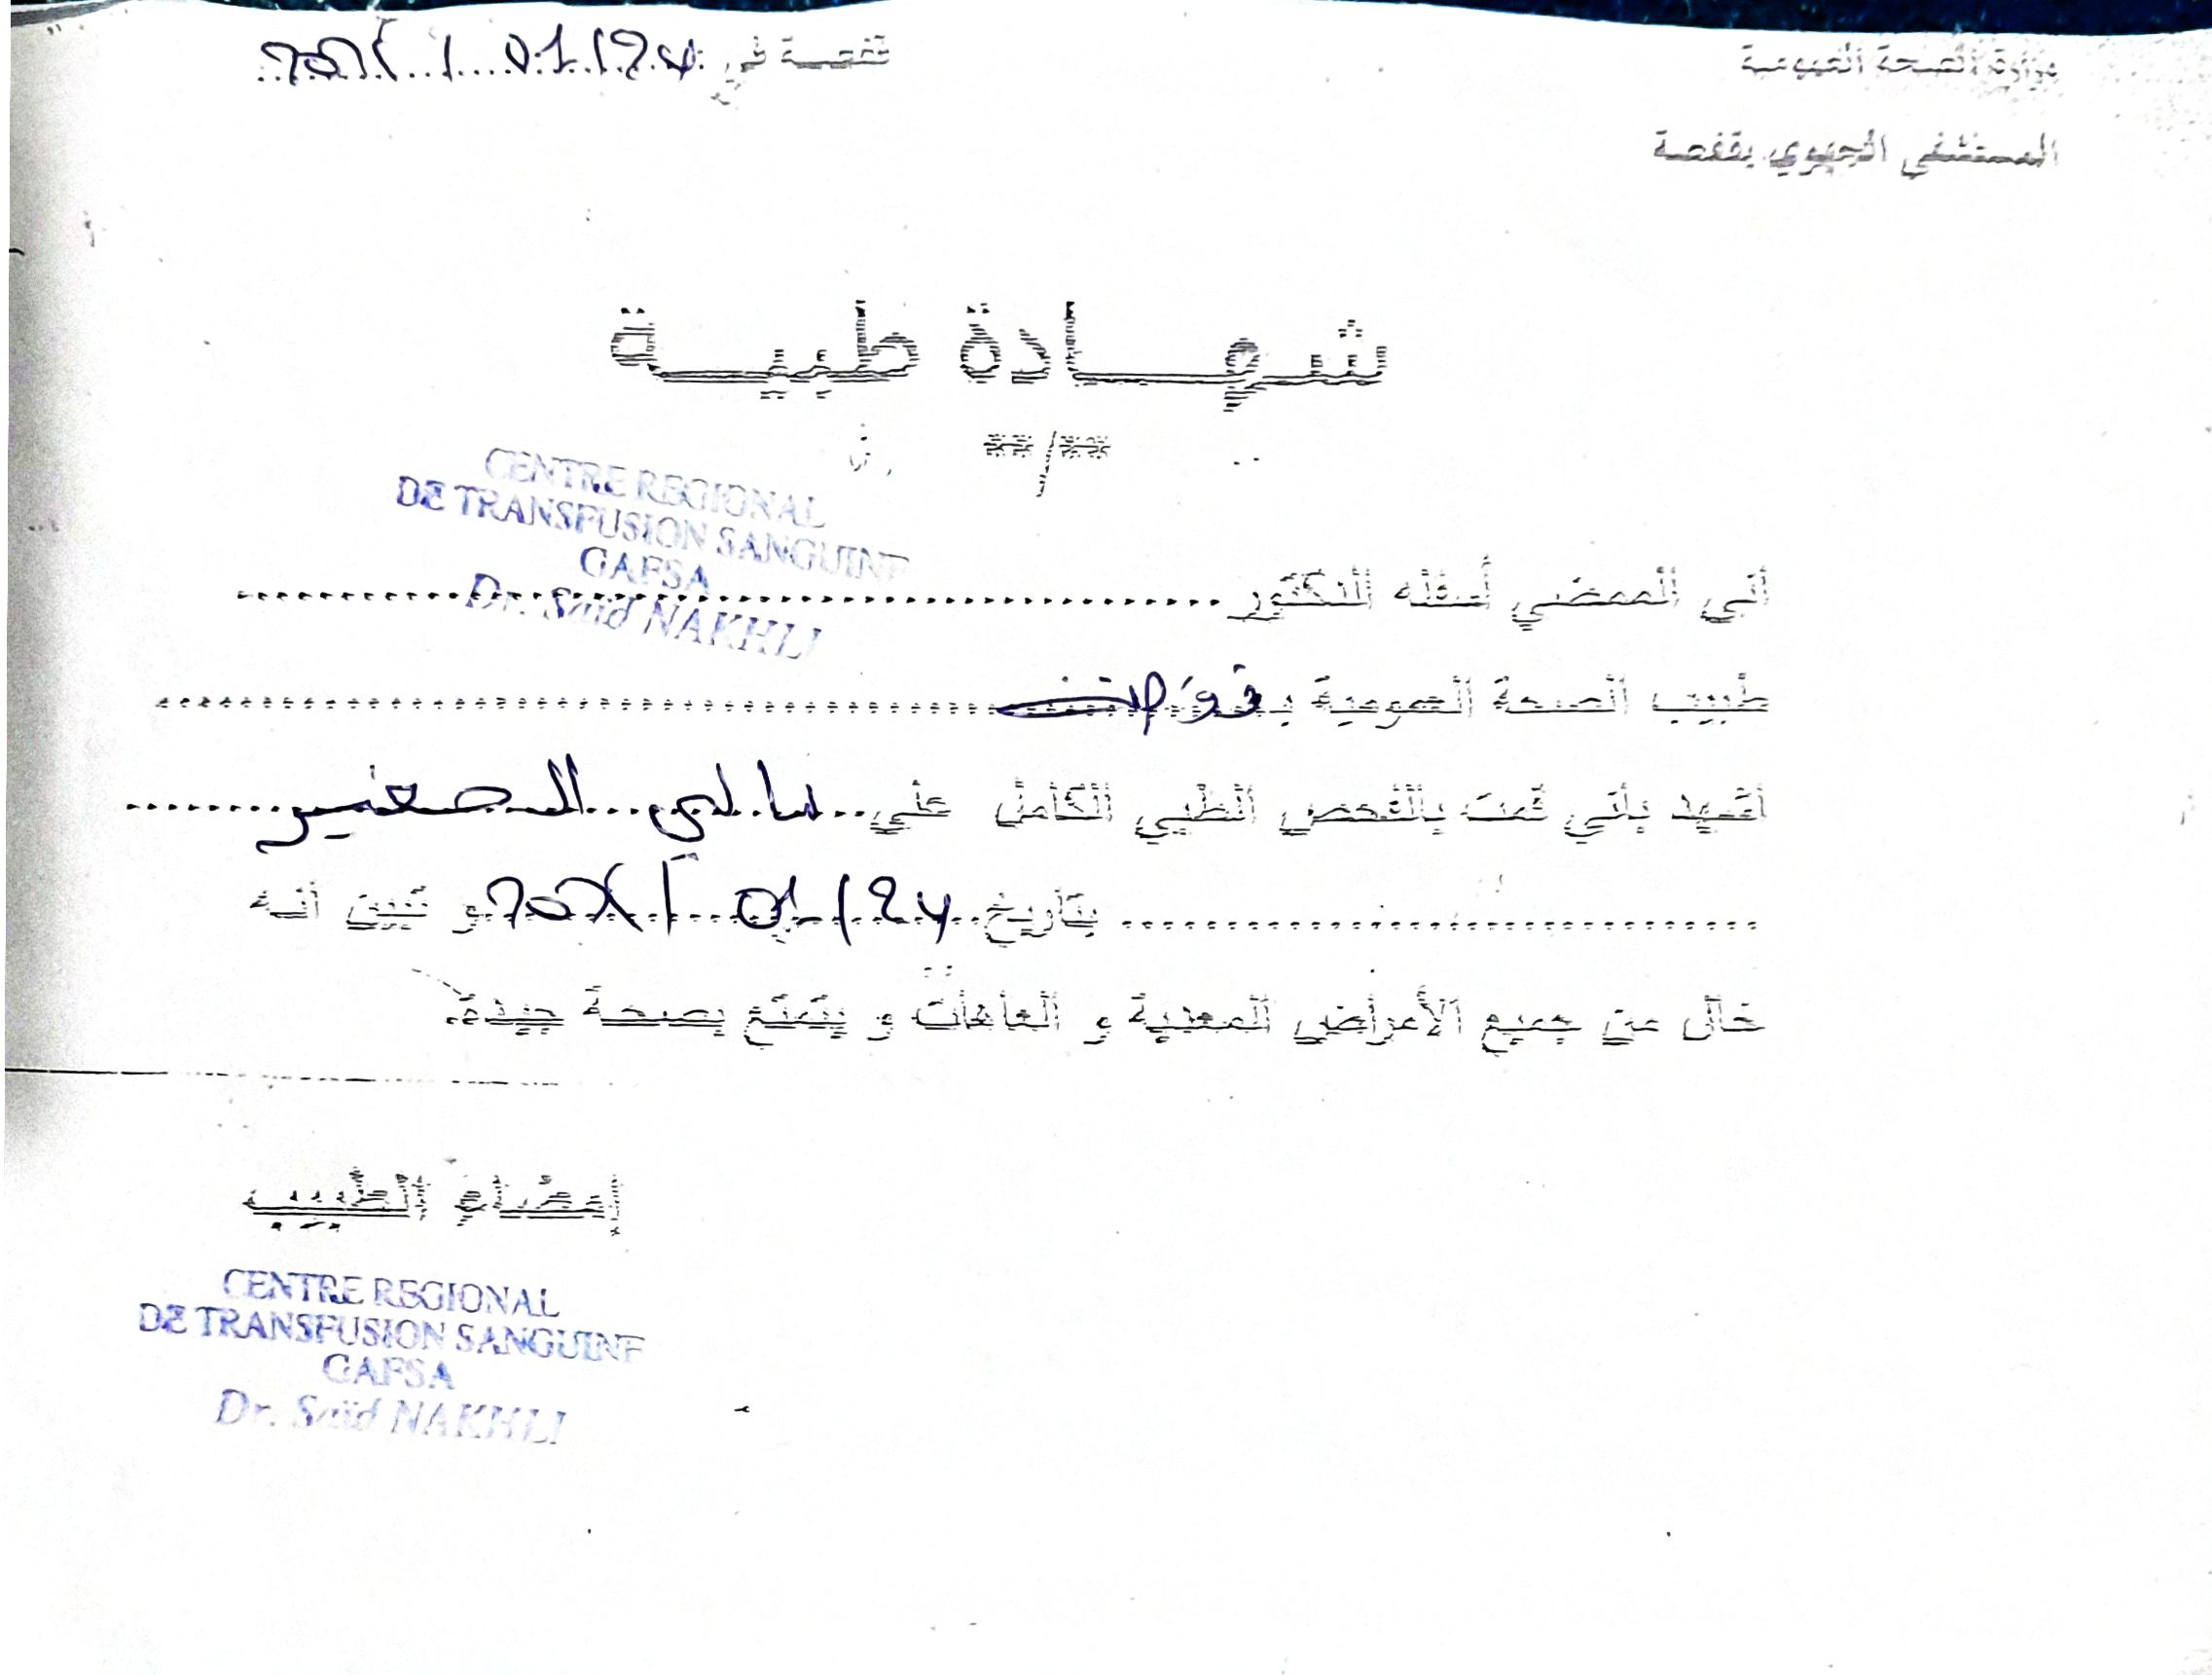 وزارة الصحة العمومية
قفصة في
المستشفى الجهوي بقفصة
شهادة طبية
**/**
CENTRE REGIONAL
DE TRANSFUSION SANGUINE
GAFSA
Dr. Saïd NAKHLI
أني الممضي أسفله الدكتور
طبيب الصحة العمومية بـ
أشهد بأني قمت بالفحص الطبي الكامل على الصغير
بتاريخ و تبين أنه
خال من جميع الأمراض المعدية و العاهات و يتمتع بصحة جيدة.
إمضاء الطبيب
CENTRE REGIONAL
DE TRANSFUSION SANGUINE
GAFSA
Dr. Saïd NAKHLI